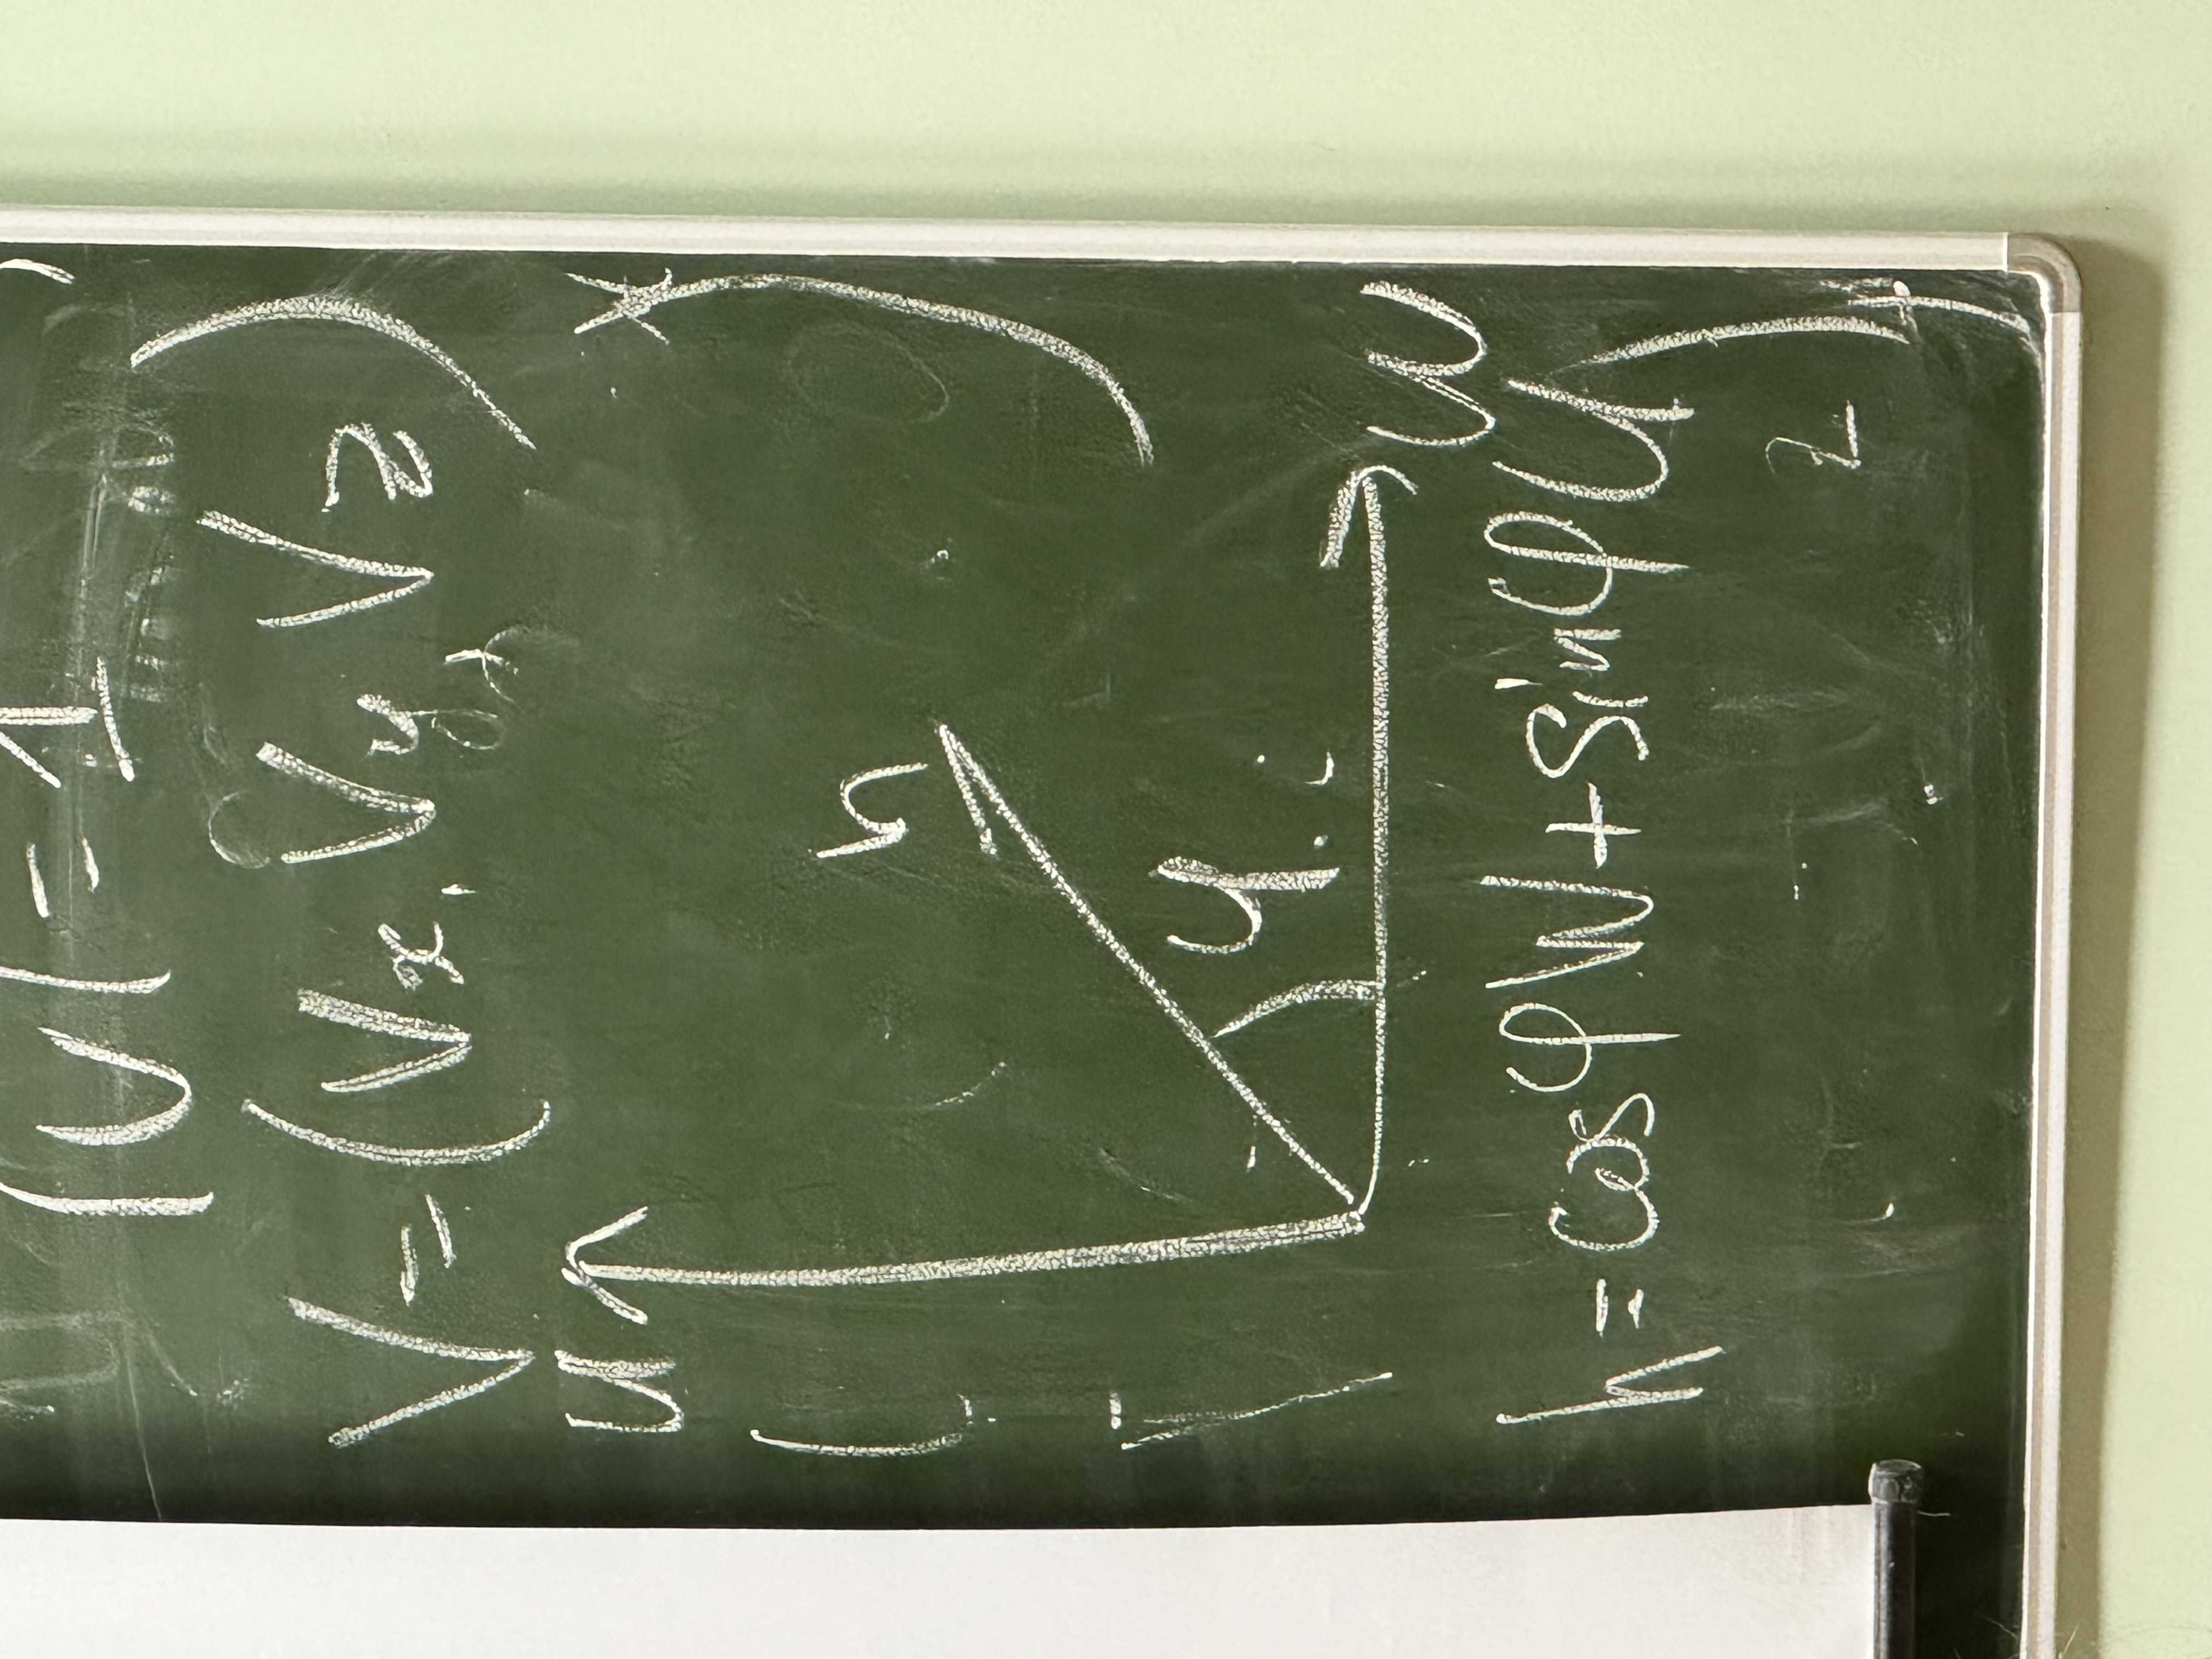 |U|=1
V=(Vx, Vy, Vz)
u
h
φ
w
h=cosφW+sinφU
2